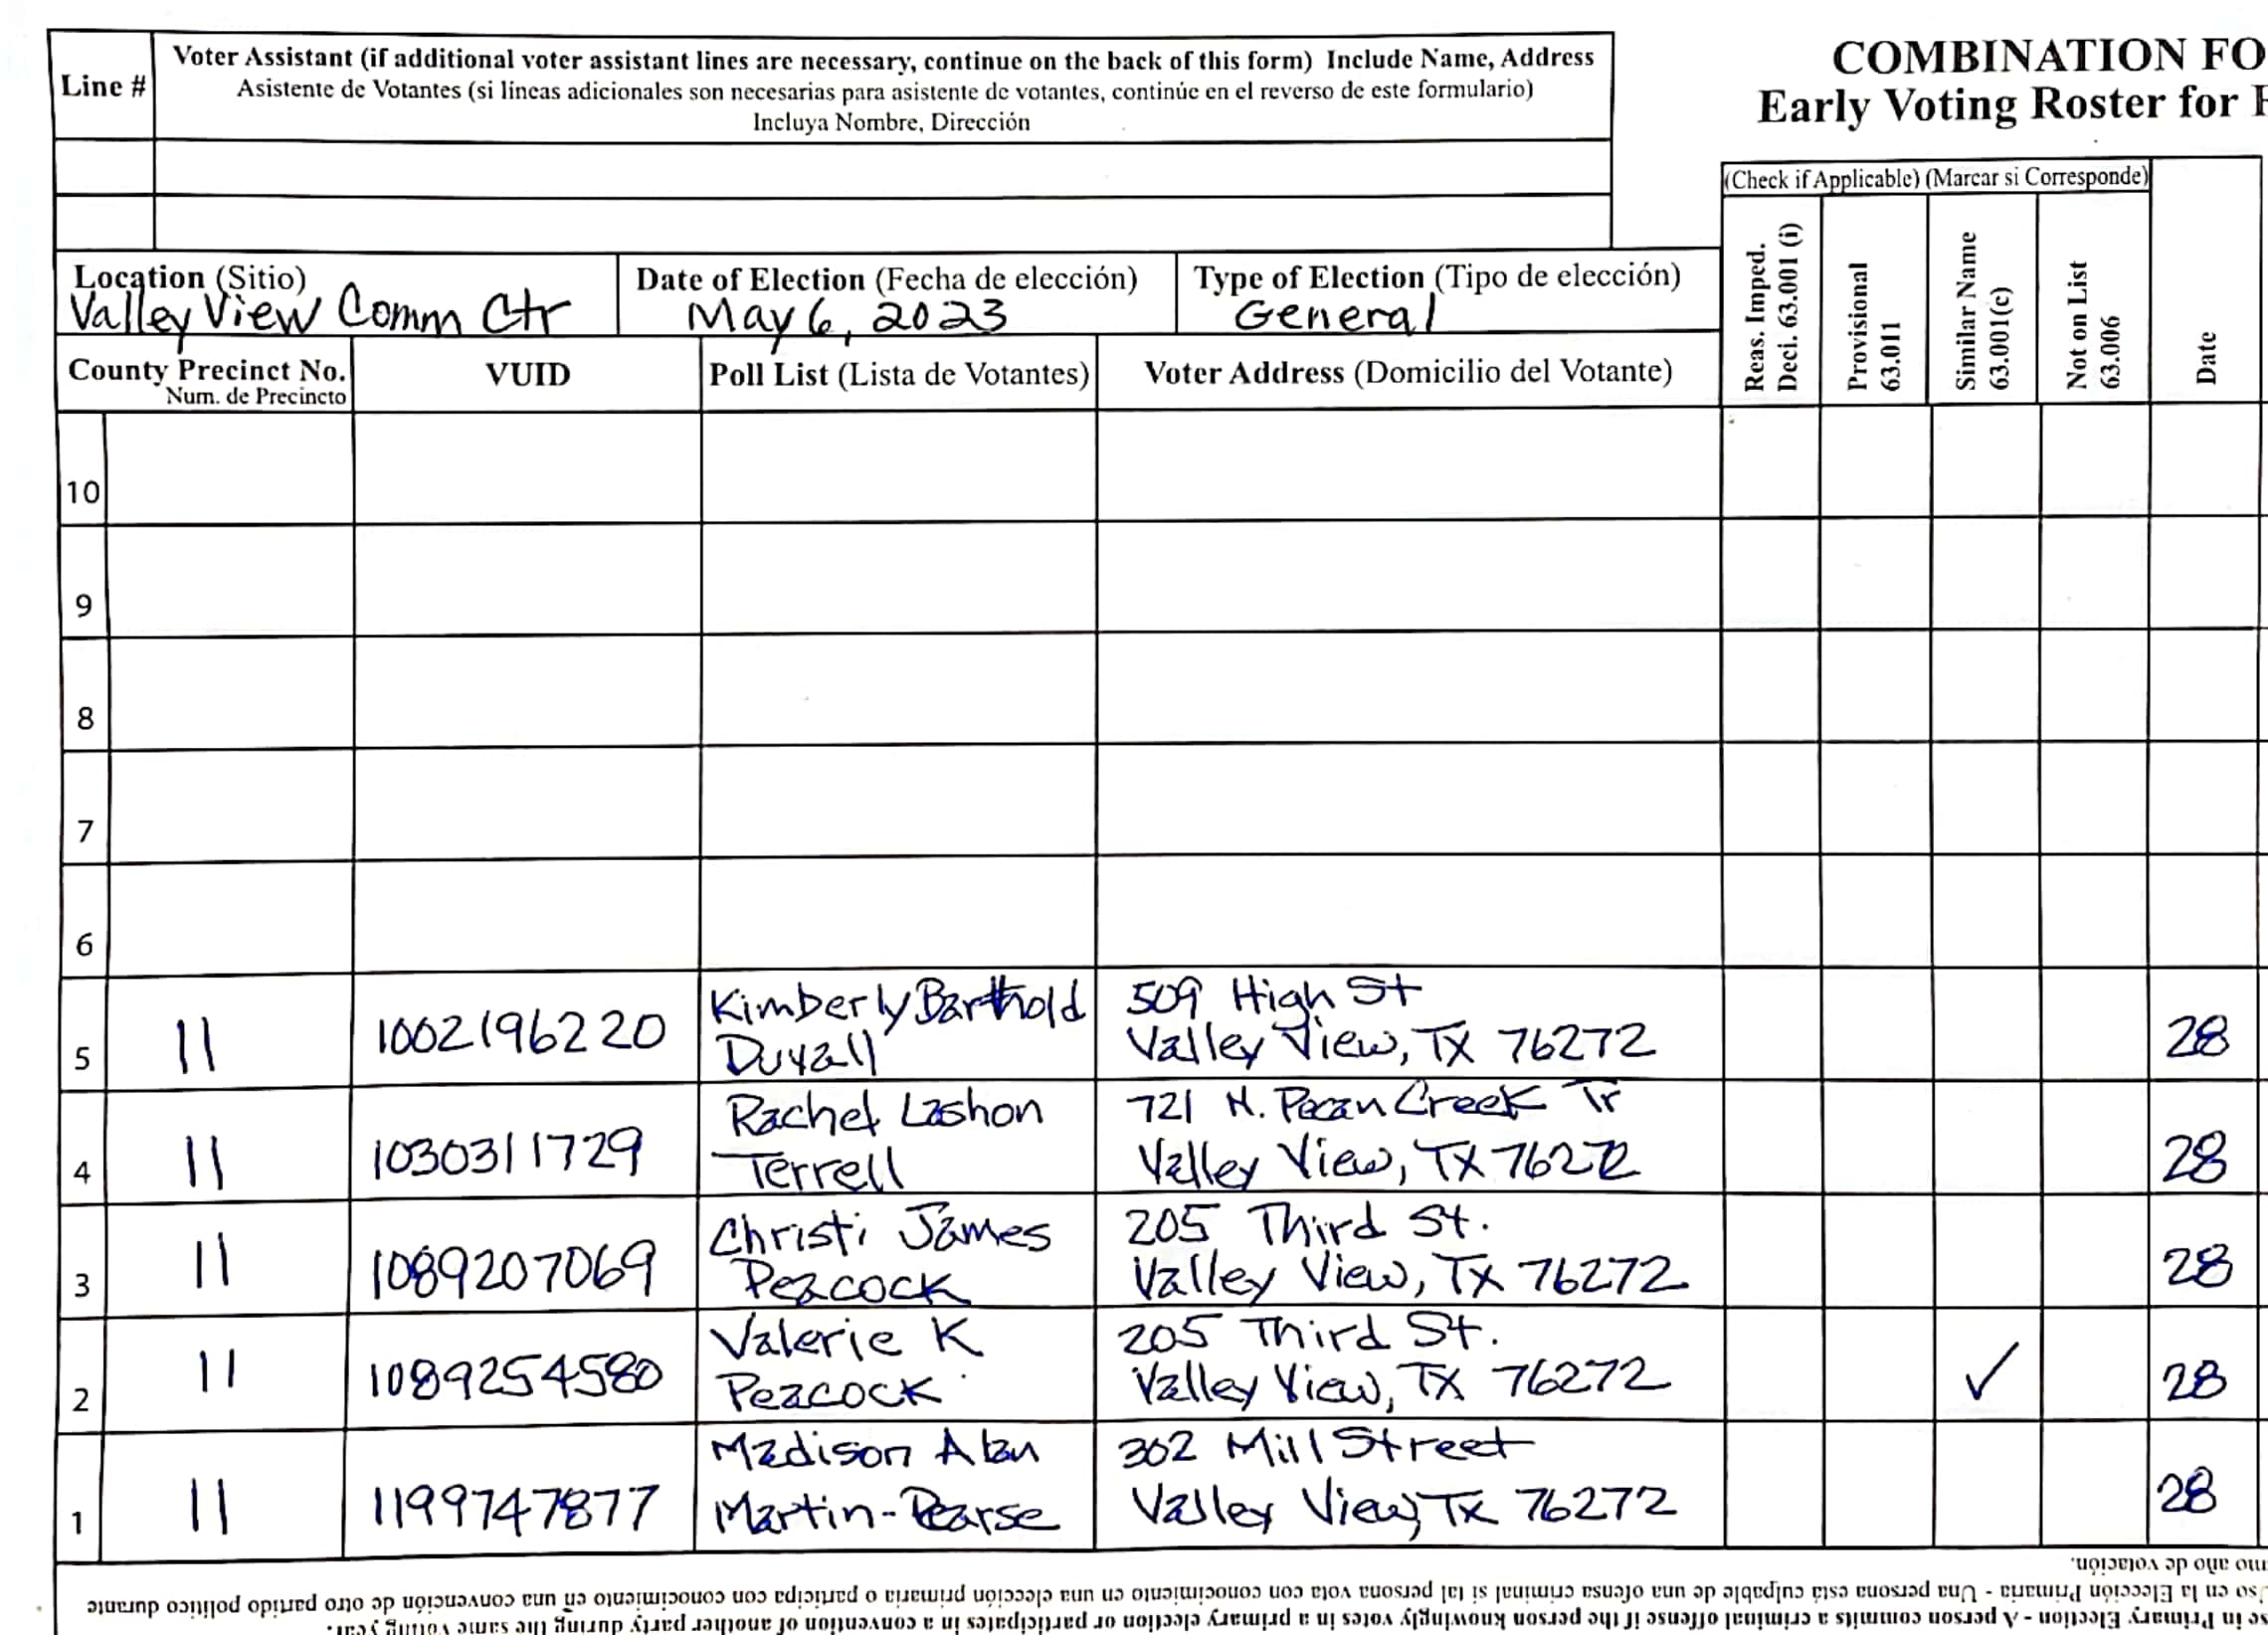 Line #
Voter Assistant (if additional voter assistant lines are necessary, continue on the back of this form) Include Name, Address
Asistente de Votantes (si líneas adicionales son necesarias para asistente de votantes, continúe en el reverso de este formulario)
Incluya Nombre, Dirección
COMBINATION FO
Early Voting Roster for
(Check if Applicable) (Marcar si Corresponde)
Reas. Imped.
Deci. 63.001 (i)
Provisional
63.011
Similar Name
63.001(c)
Not on List
63.006
Date
Location (Sitio)
Valley View Comm Ctr
Date of Election (Fecha de elección)
May 6, 2023
Type of Election (Tipo de elección)
General
County Precinct No.
Num. de Precincto
VUID
Poll List (Lista de Votantes)
Voter Address (Domicilio del Votante)
10
9
8
7
6
5 11 1002196220 Kimberly Barthold Duvall 509 High St Valley View, TX 76272 28
4 11 1030311729 Rachel Lashon Terrell 721 N. Pecan Creek Tr Valley View, TX 76272 28
3 11 1089207069 Christi James Peacock 205 Third St. Valley View, TX 76272 28
2 11 1089254580 Valerie K Peacock 205 Third St. Valley View, TX 76272 ✓ 28
1 11 1199747877 Madison Alan Martin-Pearse 302 Mill Street Valley View, TX 76272 28
se in Primary Election - A person commits a criminal offense if the person knowingly votes in a primary election or participates in a convention of another party during the same voting year.
so en la Elección Primaria - Una persona está culpable de una ofensa criminal si tal persona vota con conocimiento en una elección primaria o participa con conocimiento en una convención de otro partido político durante
mo año de votación.